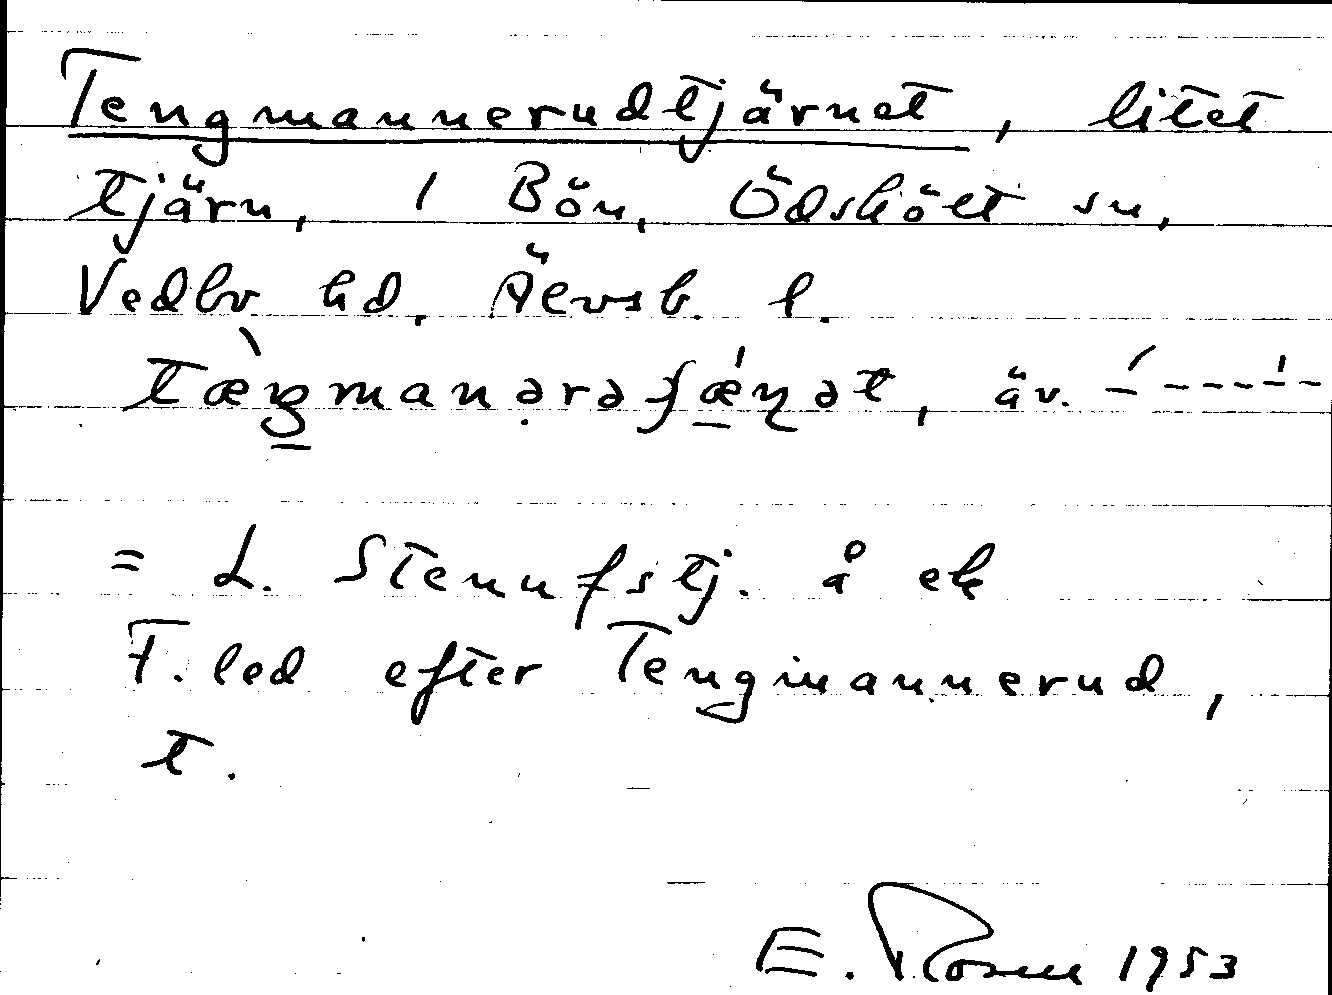 Tengmannerudtjärnet, litet
tjärn, i Bön, Ödskölt sn,
Vedbo hd. Älvsb. l.
tæ̀ŋmanərəʃǽɳət, äv. –́ – – – –́ –
= L. Stennfstj. å ek
F. led efter Tengmannerud,
t.
E. Rosell 1953